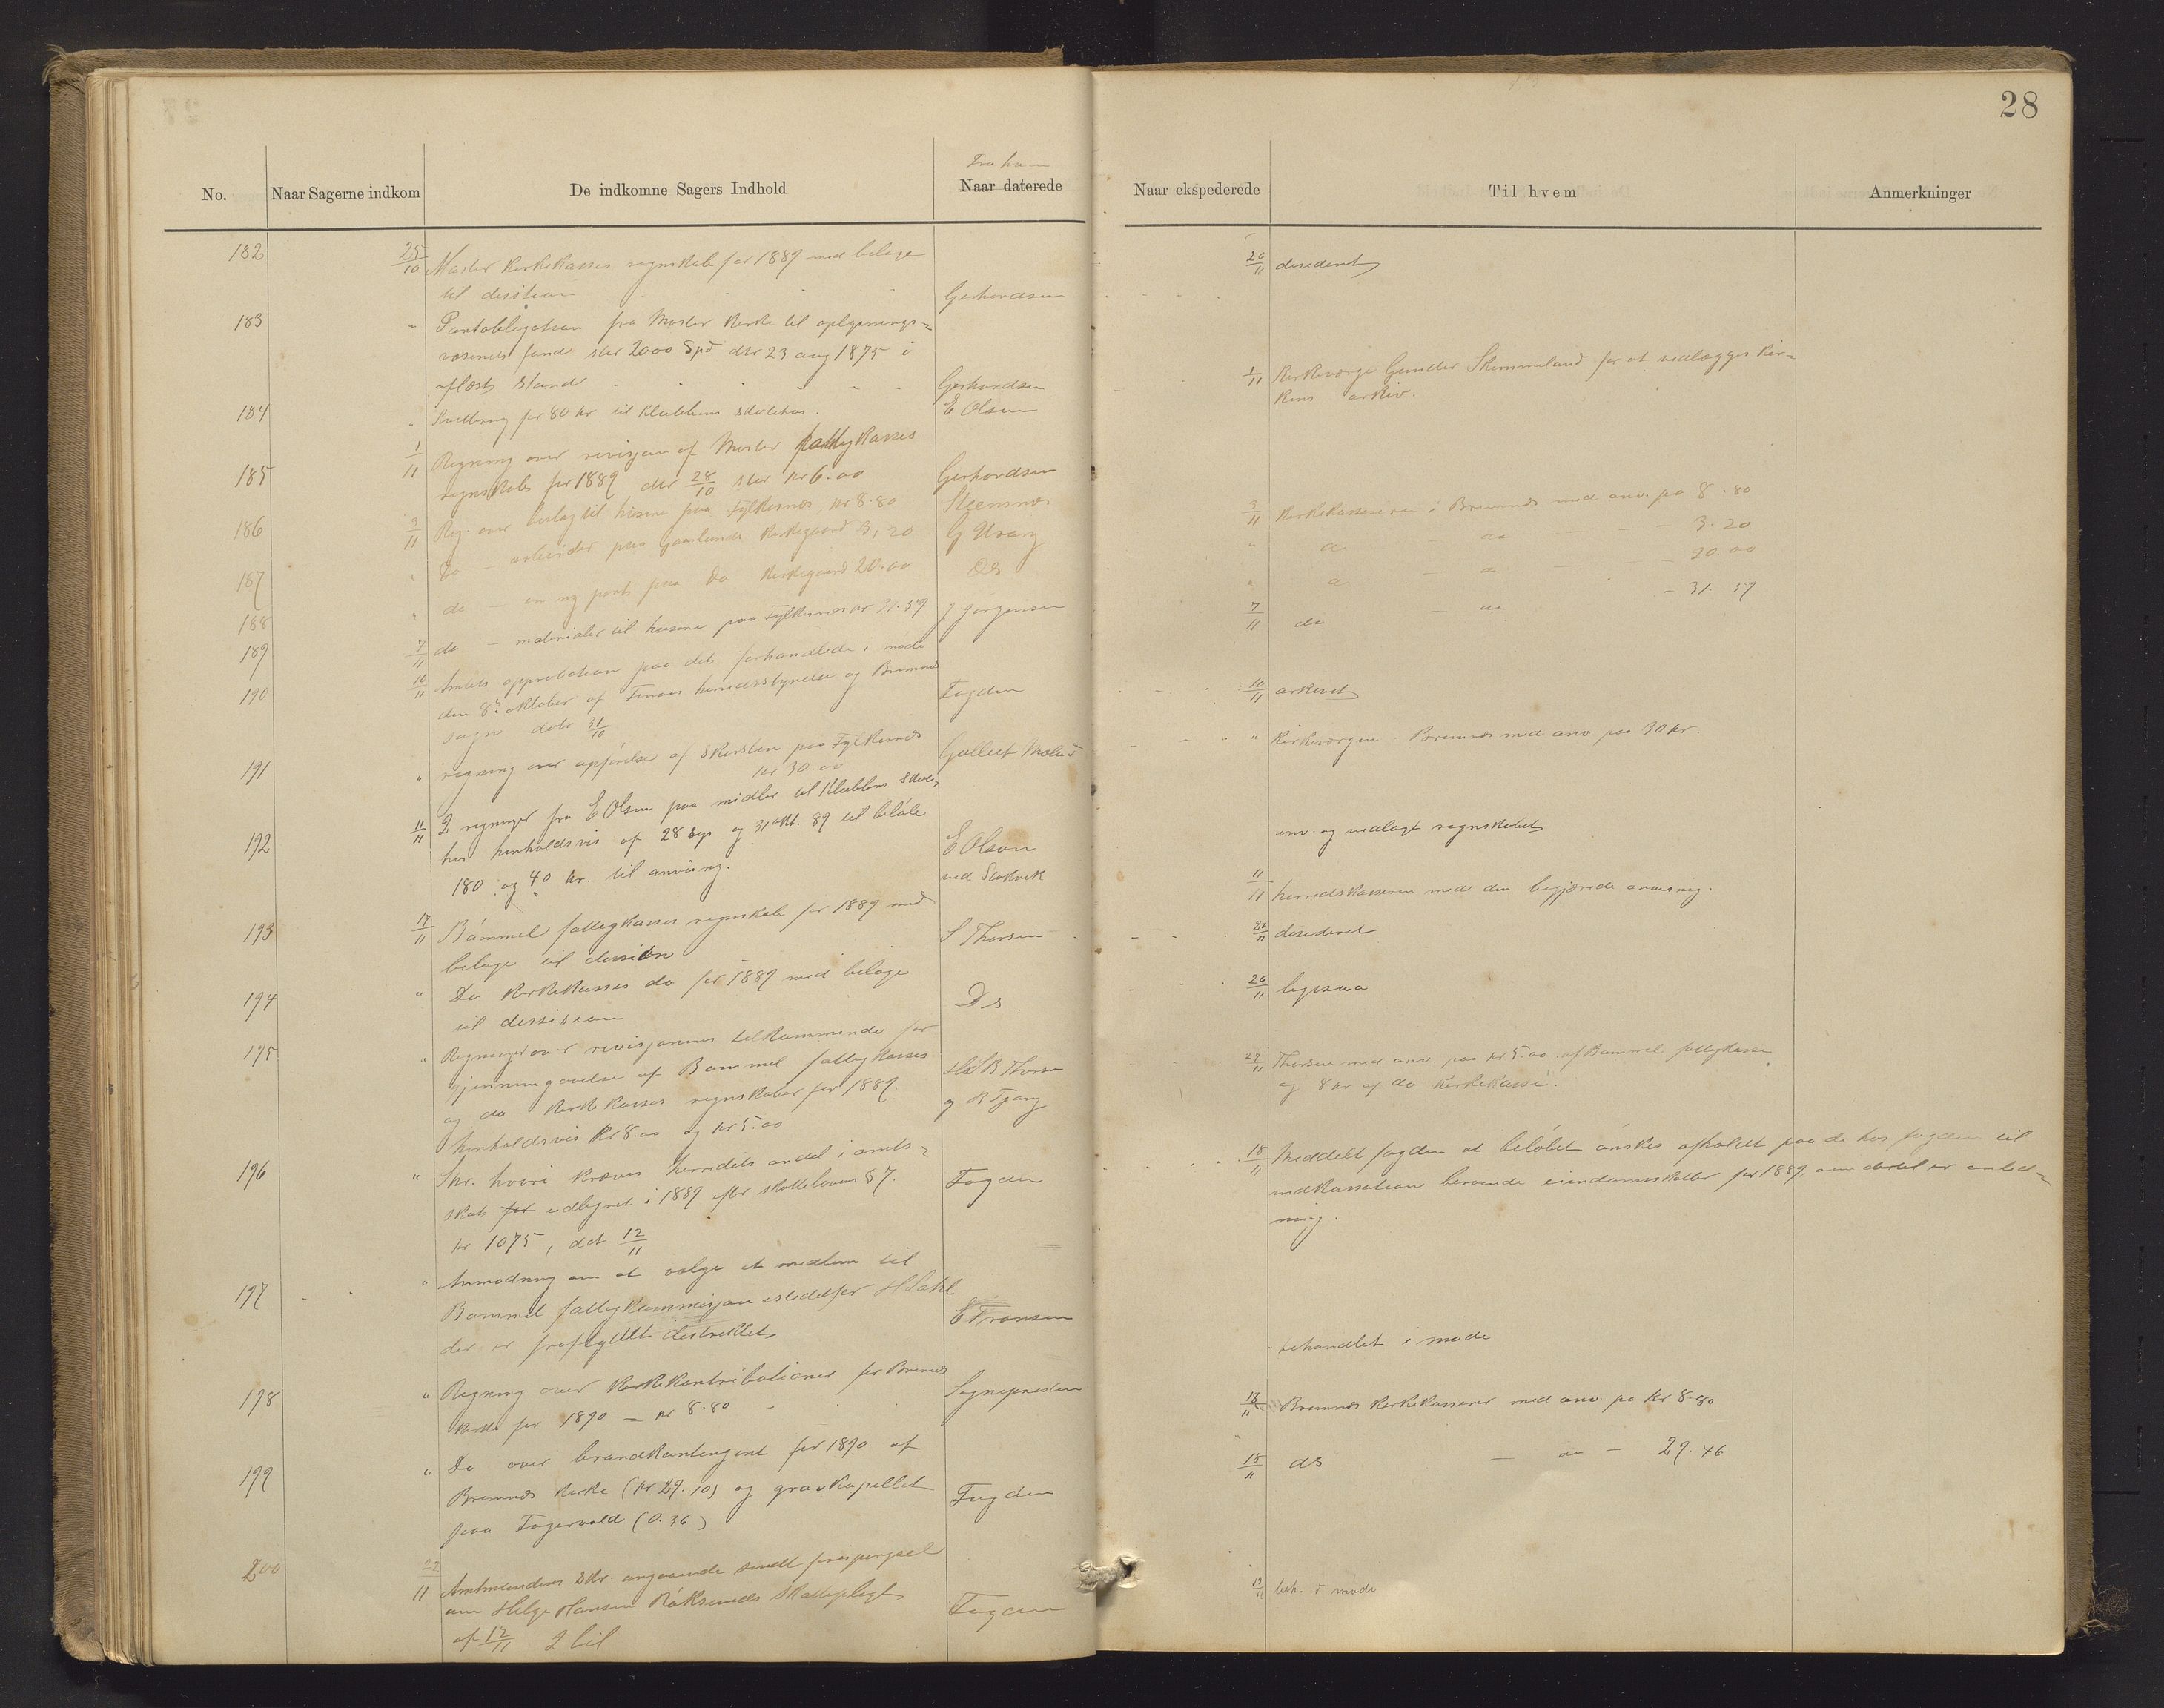 28
Fra hvem
No.
Naar Sagerne indkom
De indkomne Sagers Indhold
Naar daterede
Naar ekspederede
Til hvem
Anmerkninger
182 25/10 Moster kirkekasses regnskab for 1889 med bilage
til Gerhardsen
20/11 desideret
183 " Pantobligation fra Moster kirke til oplysnings-
væsenets fond stor 2000 Spd dtr 23 aug 1875 i
aflæst stand Gerhardsen
1/11 Kirkeværge Gunder Skimmeland for at vedlægges kir-
kens arkiv.
184 " for 80 kr til Klubbens skolehus. E Olsen
185 1/11 Regning over revisjon af Moster fattigkasses
regnskab for 1889 dtr 28/10 stor kr 6.00 Gerhardsen
186 3/11 Reg. over til husene paa Fylkesnæs kr 8.80 Steensnæs
3/11 Kirkekassereren i Bremnæs med anv. pa 8.80
187 " Do - arbeider paa kirkegaard 3,20 G Urang
" do - do - 3.20
188 " do - en ny port paa do kirkegaard 20.00 Ds
" do do - 20.00
189 7/11 do - materialer til husene paa Fylkesnæs kr 31.59 J Jørgensen
7/11 do - do - 31.59
190 10/11 Amtets approbation paa det forhandlede i møde
den 8de oktober af Finaas herredsstyrelse og Bremnæs
sogn datr 31/10 Fogden
10/11 arkivet
191 " regning over opførelse af skorsten paa Fylkesnæs
kr 30.00 Gullect
" Kirkeværgen i Bremnæs med anv paa 30 kr.
192 11/11 2 regninger fra E Olsen paa midler til Klubbens skole-
hus henholdsvis af 28 Sep og 31 okt. 89 til beløb
180 og 40 kr. til anvisning. E Olsen
ved
anv. og vedlagt regnskabet
11/11 herredskasseren med den begjærede anvisning.
193 17/11 Bømmel fattigkasses regnskab for 1889 med
bilage til S Thorsen
20/11 desideret
194 " Do kirkekasses do for 1889 med bilage
til Ds.
20/11 ligesaa
195 " Regninger over revisjonens tilkommende for
gjennemgaaelse af Bømmel fattigkasses
og do kirkekasses regnskaber for 1889.
henholdsvis kr 8.00 og kr 5.00 Thorsen
og
27/11 Thorsen med anv. paa kr 5.00 af Bømmel fattigkasse
og 8 kr af do kirkekasse.
196 " Skr. hvori kræves herredets andel i amts-
skat for udlignet i 1889 efter skattelovens § 7.
kr 1075, dat 12/11 Fogden
18/11 Meddelt fogden at beløbet ønskes afholdt paa de hos fogden til
indkassation beroende eiendomsskatter for 1889, om dertil er anled-
ning.
197 " Anmodning om at vælge et medlem til
Bømmel fattigkommisjon istedetfor
der er fraflyttet distriktet E Fransen
behandlet i møde
198 " Regning over kirkekontributioner for Bremnæs
kirke for 1890 - kr 8.80 Sognepresten
18/11 Bremnæs kirkekasserer med anv. pa kr 8.80
199 " Do over brandkontingent for 1890 af
Bremnæs kirke (kr 29.10) og gravkapellet
paa Fagervold (0.36) Fogden
18/11 ds - do - 29.46
200 /11 Amtmandens skr. angaaende sendt forespørgsel
om Helge Hansen Røksunds skattepligt
af 12/11 2 bil Fogden
beh. i møde